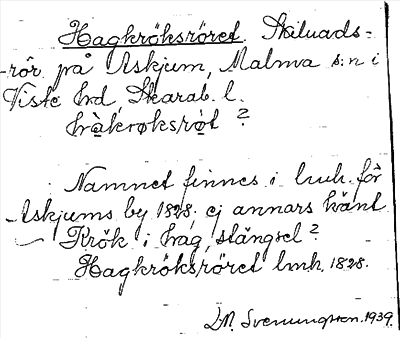 Hagkröksröret. Skilnads-
-rör på Askjum, Malma s:n i
Viste hrd, Skarab. l.
hàkrøksrøt ?
Namnet finnes i lmh. för
Askjums by 1828. ej annars känt
Krök i hag, stängsel ?
Hagkröksröret lmh. 1828.
D.M. Svenungsson. 1939.